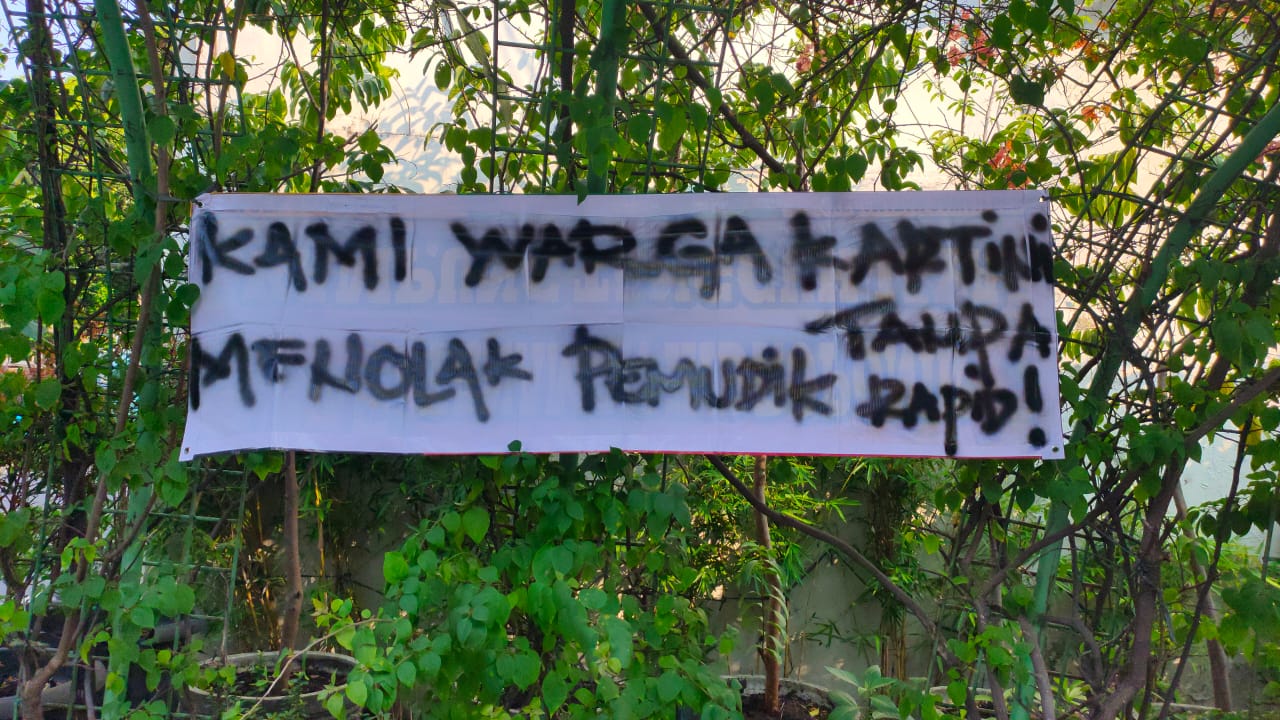 KAMI WARGA KARTiNi
MENOLAK PEMUDiK TANPA
RApiD!